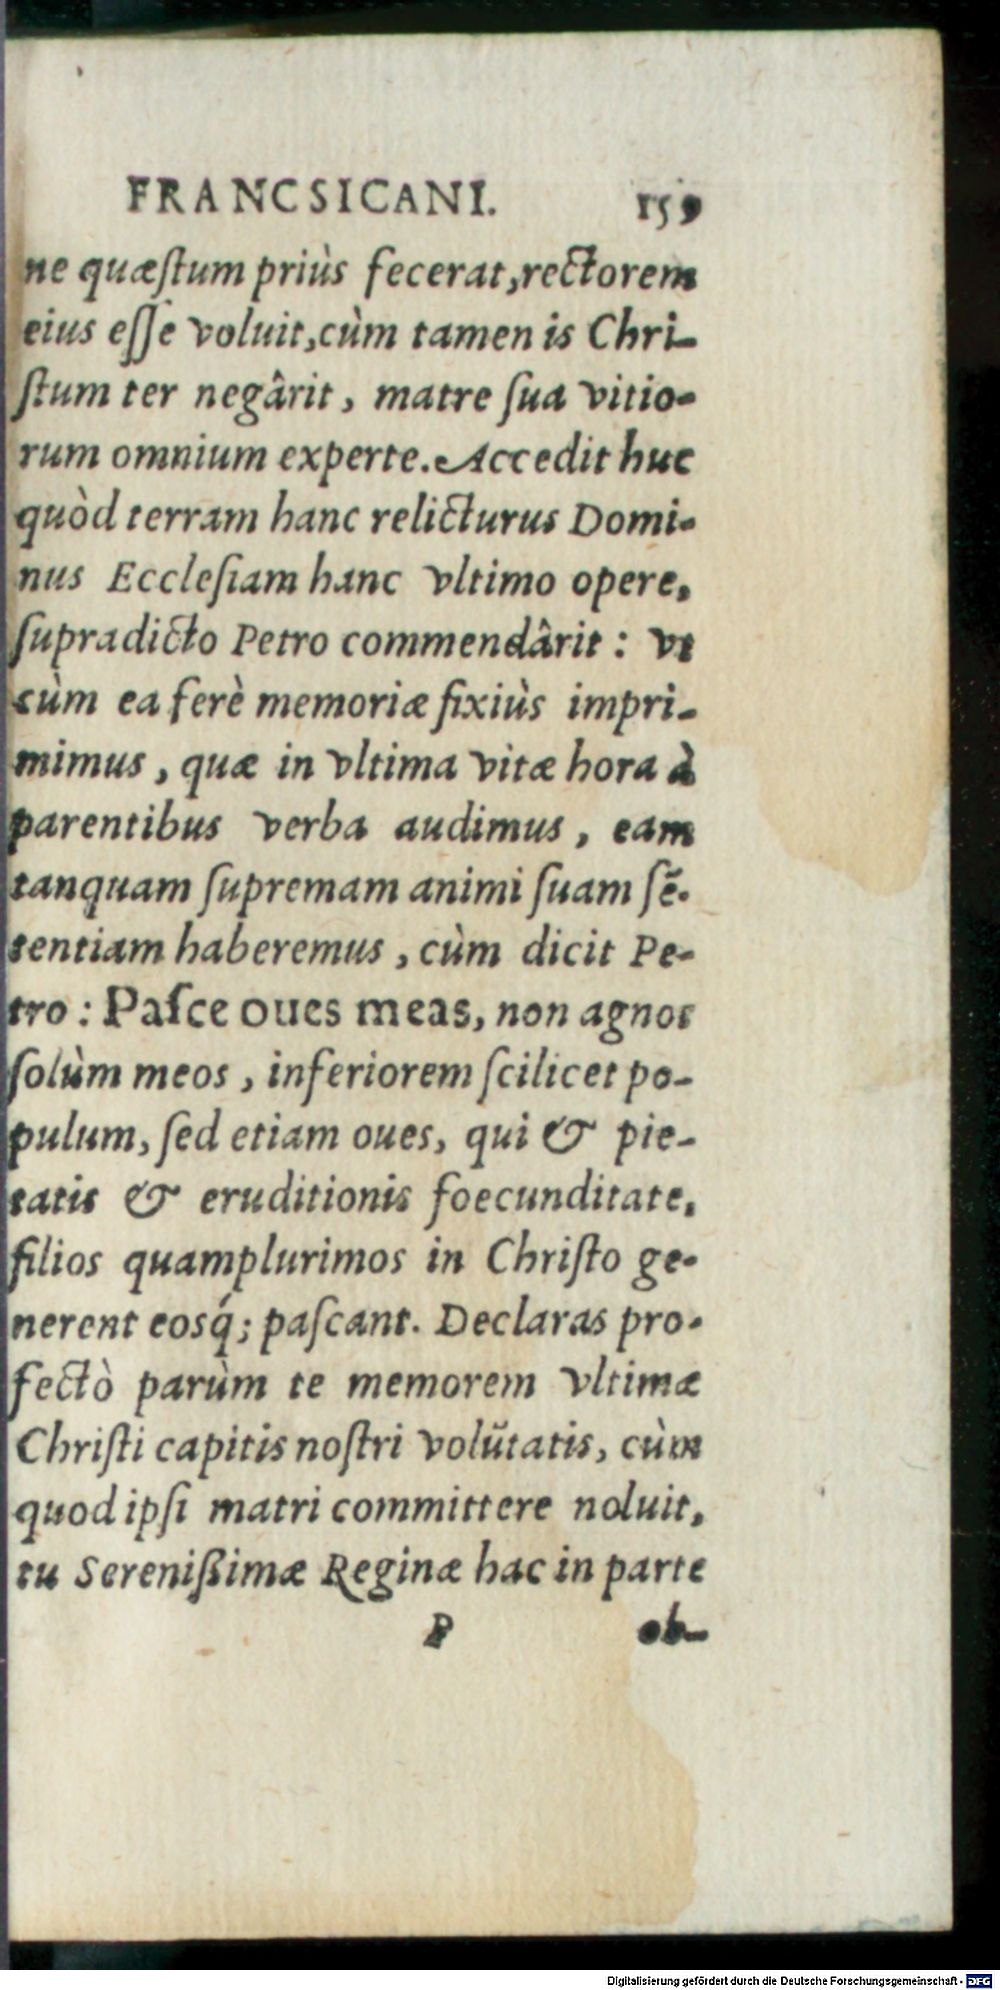 FRANCSICANI. 159
ne quæſtum priùs fecerat, rectorem
eius eſſe voluit, cùm tamen is Chri-
ſtum ter negârit, matre ſua vitio-
rum omnium experte. Accedit huc
quòd terram hanc relicturus Domi-
nus Eccleſiam hanc vltimo opere,
ſupradicto Petro commendârit: vt
cùm ea ferè memoriæ fixiùs impri-
mimus, quæ in vltima vitæ hora à
parentibus verba audimus, eam
tanquam ſupremam animi ſuam ſē-
tentiam haberemus, cùm dicit Pe-
tro: Paſce oues meas, non agnos
ſolùm meos, inferiorem ſcilicet po-
pulum, ſed etiam oues, qui & pie-
tatis & eruditionis foecunditate,
filios quamplurimos in Chriſto ge-
nerent eosq́; paſcant. Declaras pro-
fectò parùm te memorem vltimæ
Chriſti capitis noſtri volūtatis, cùm
quod ipſi matri committere noluit,
tu Sereniſſimæ Reginæ hac in parte
P ob-
Digitalisierung gefördert durch die Deutsche Forschungsgemeinschaft - DFG